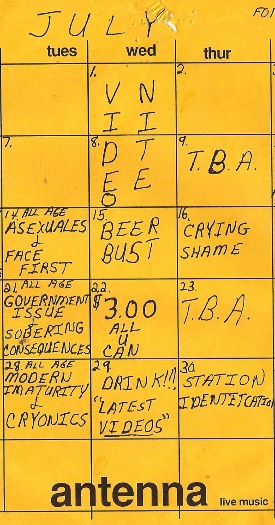 JULY
FO
tues wed thur
1. V N
I I
2.
7.
8. D T
E E
O
9. T.B.A.
14. ALL AGE
ASEXUALES
&
FACE
FIRST
15. BEER
BUST
16. CRYING
SHAME
21. ALL AGE
GOVERNMENT
ISSUE
&
SOBERING
CONSEQUENCES
22. $3.00
ALL
U
CAN
23. T.B.A.
28. ALL AGE
MODERN
IMATURITY
&
CRYONICS
29. DRINK!!!
"LATEST
VIDEOS"
30. STATION
IDENTIFICATION
antenna live music